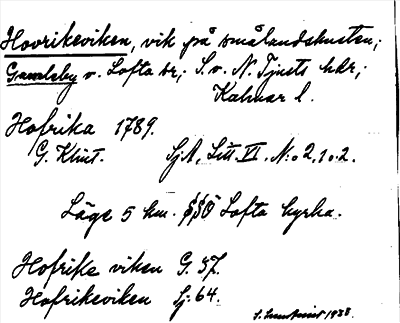 Hovrikeviken, vik på smålandskusten;
Gamleby v. Lofta sn; S. o. N. Tjusts hdr;
Kalmar l.
Hofrika 1789.
G. Klint. SjA, Litt. VI. N:o 2, 1 o. 2.
Läge 5 km. SSÖ Lofta kyrka.
Hofrike viken G. 37.
Hofrikeviken Sj. 64.
1938